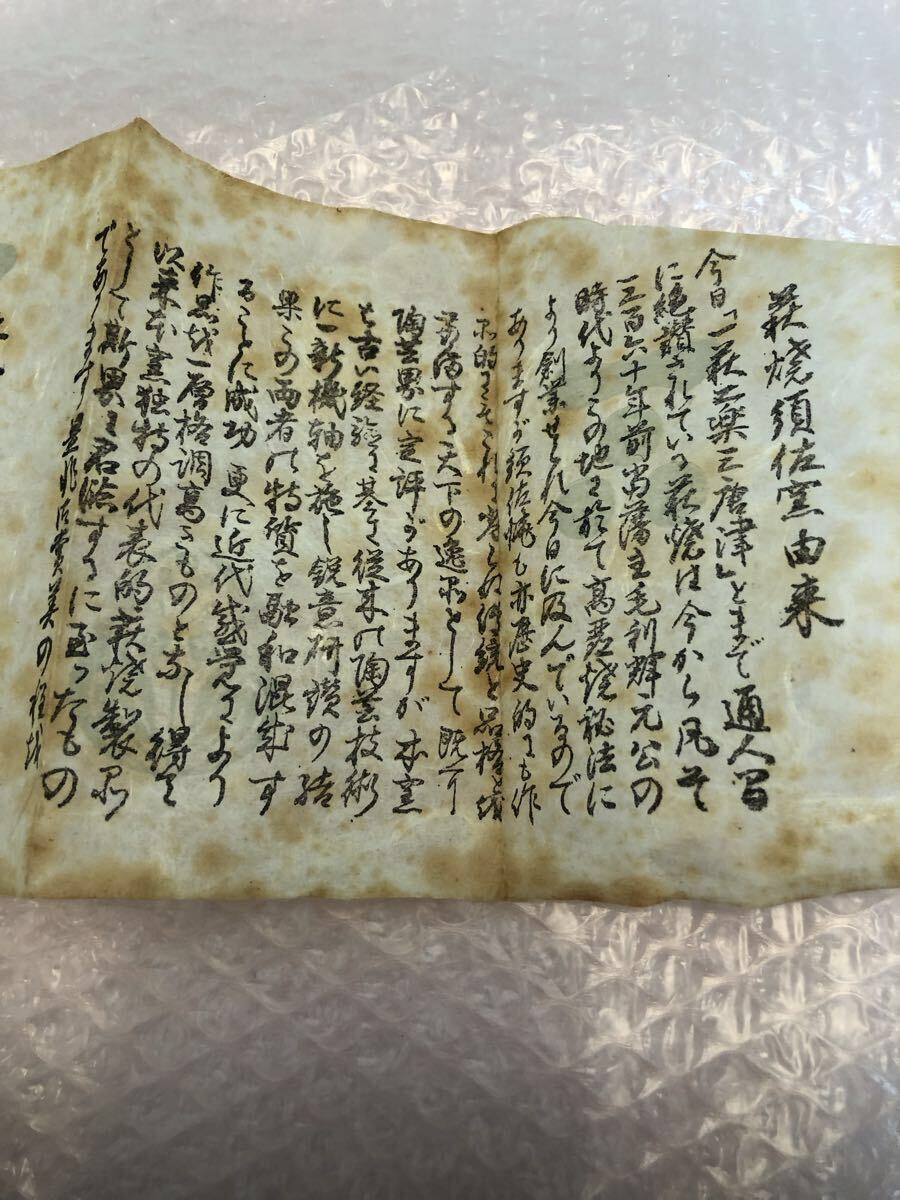 萩焼須佐窯由来
今日「一萩二楽三唐津」とまで通人間
に絶讃されている萩焼は今から凡そ
三百六十年前当藩主毛利輝元公の
時代よりこの地に於て高麗焼秘法に
より創業せられ今日に及んでいるので
ありますが須佐焼も亦歴史的にも作
品的にもそれに劣らぬ伝統と品格を
する天下の逸品として既に
陶芸界に定評がありますが本窯
は古い経験を基に従来の陶芸技術
に一新機軸を施し鋭意研鑽の結
果この両者の特質を融和混成す
ることに成功 更に近代感覚により
作品を一層格調高きものと為し得て
以来本窯独特の代表的萩焼製品
として斯界に君臨するに至つたもの
であります 是非御賞美の程を